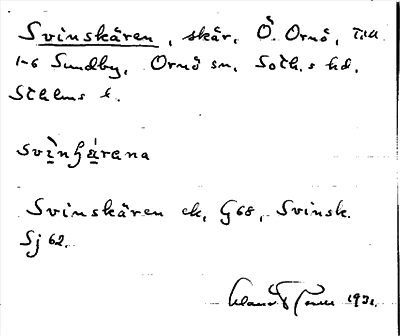 Svinskären, skär, Ö. Ornö, till
1-6 Sundby, Ornö sn, Soth.s hd,
Sthlms l.
svìnʃä́rəna
Svinskären ek, G68, Svinsk.
Sj 62.
1931